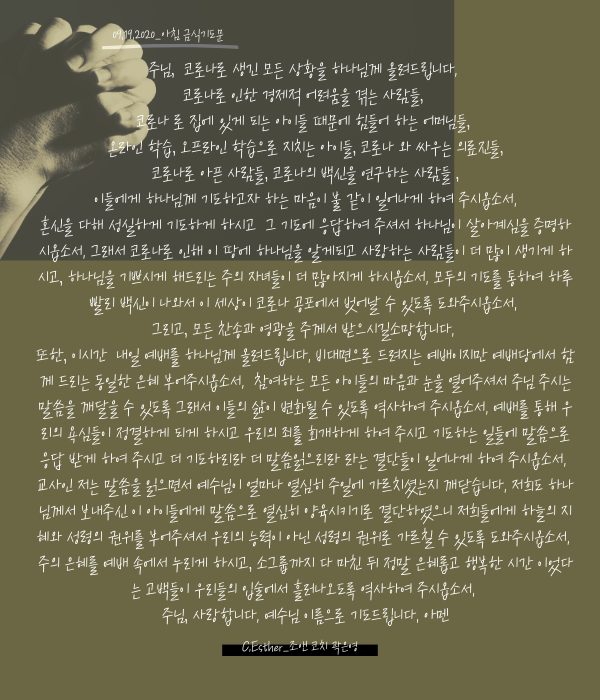 09.19.2020_아침 금식기도문
주님, 코로나로 생긴 모든 상황을 하나님께 올려드립니다.
코로나로 인한 경제적 어려움을 겪는 사람들,
코로나 로 집에 있게 되는 아이들 때문에 힘들어 하는 어머님들,
온라인 학습, 오프라인 학습으로 지치는 아이들, 코로나 와 싸우는 의료진들,
코로나로 아픈 사람들, 코로나의 백신을 연구하는 사람들 ,
이들에게 하나님께 기도하고자 하는 마음이 불 같이 일어나게 하여 주시옵소서,
혼신을 다해 성실하게 기도하게 하시고 그 기도에 응답하여 주셔서 하나님이 살아계심을 증명하
시옵소서, 그래서 코로나로 인해 이 땅에 하나님을 알게되고 사랑하는 사람들이 더 많이 생기게 하
시고, 하나님을 기쁘시게 해드리는 주의 자녀들이 더 많아지게 하시옵소서, 모두의 기도를 통하여 하루
빨리 백신이 나와서 이 세상이 코로나 공포에서 벗어날 수 있도록 도와주시옵소서,
그리고, 모든 찬송과 영광을 주께서 받으시길소망합니다,
또한, 이시간 내일 예배를 하나님께 올려드립니다, 비대면으로 드려지는 예배이지만 예배당에서 함
께 드리는 동일한 은혜 부어주시옵소서, 참여하는 모든 아이들의 마음과 눈을 열어주셔서 주님 주시는
말씀을 깨달을 수 있도록 그래서 이들의 삶이 변화될 수 있도록 역사하여 주시옵소서, 예배를 통해 우
리의 욕심들이 정결하게 되게 하시고 우리의 죄를 회개하게 하여 주시고 기도하는 일들에 말씀으로
응답 받게 하여 주시고 더 기도하리라 더 말씀읽으리라 라는 결단들이 일어나게 하여 주시옵소서,
교사인 저는 말씀을 읽으면서 예수님이 얼마나 열심히 주일에 가르치셨는지 깨닫습니다, 저희도 하나
님께서 보내주신 이 아이들에게 말씀으로 열심히 양육시키기로 결단하였으니 저희들에게 하늘의 지
혜와 성령의 권위를 부어주셔서 우리의 능력이 아닌 성령의 권위로 가르칠 수 있도록 도와주시옵소서,
주의 은혜를 예배 속에서 누리게 하시고, 소그룹까지 다 마친 뒤 정말 은혜롭고 행복한 시간 이었다
는 고백들이 우리들의 입술에서 흘러나오도록 역사하여 주시옵소서,
주님, 사랑합니다, 예수님 이름으로 기도드립니다, 아멘
C.Esther_조앤 코치 곽은영